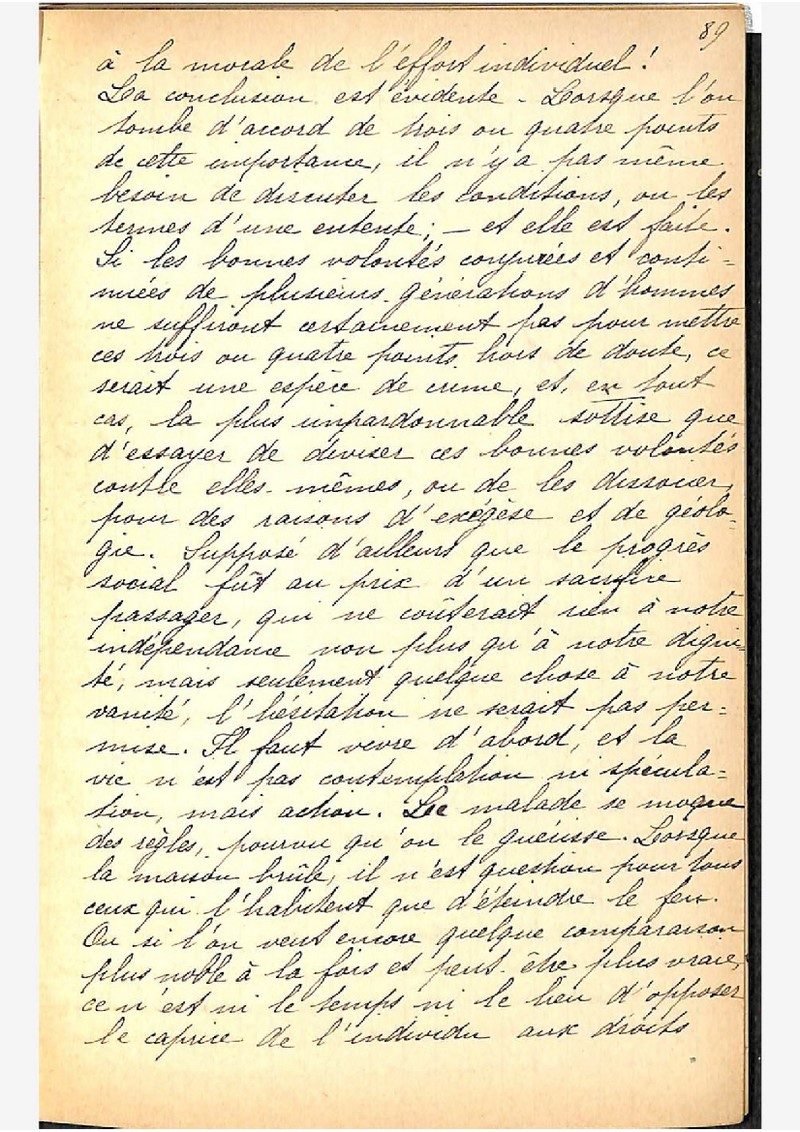 89
à la morale de l'effort individuel !
La conclusion est évidente - Lorsque l'on
tombe d'accord de trois ou quatre points
de cette importance, il n'y a pas même
besoin de discuter les conditions, ou les
termes d'une entente ; — et elle est faite.
Si les bonnes volontés conjurées et conti-
nuées de plusieurs générations d'hommes
ne suffiront certainement pas pour mettre
ces trois ou quatre points hors de doute, ce
serait une espèce de crime, et, en tout
cas, la plus impardonnable sottise que
d'essayer de diviser ces bonnes volontés
contre elles-mêmes, ou de les dissocier,
pour des raisons d'exégèse et de géolo-
gie. Supposé d'ailleurs que le progrès
social fût au prix d'un sacrifice
passager, qui ne coûterait rien à notre
indépendance non plus qu'à notre digni-
té, mais seulement quelque chose à notre
vanité, l'hésitation ne serait pas per-
mise. Il faut vivre d'abord, et la
vie n'est pas contemplation ni spécula-
tion, mais action. Le malade se moque
des règles, pourvu qu'on le guérisse. Lorsque
la maison brûle, il n'est question pour tous
ceux qui l'habitent que d'éteindre le feu.
Ou si l'on veut encore quelque comparaison
plus noble à la fois et peut-être plus vraie,
ce n'est ni le temps ni le lieu d'opposer
le caprice de l'individu aux droits